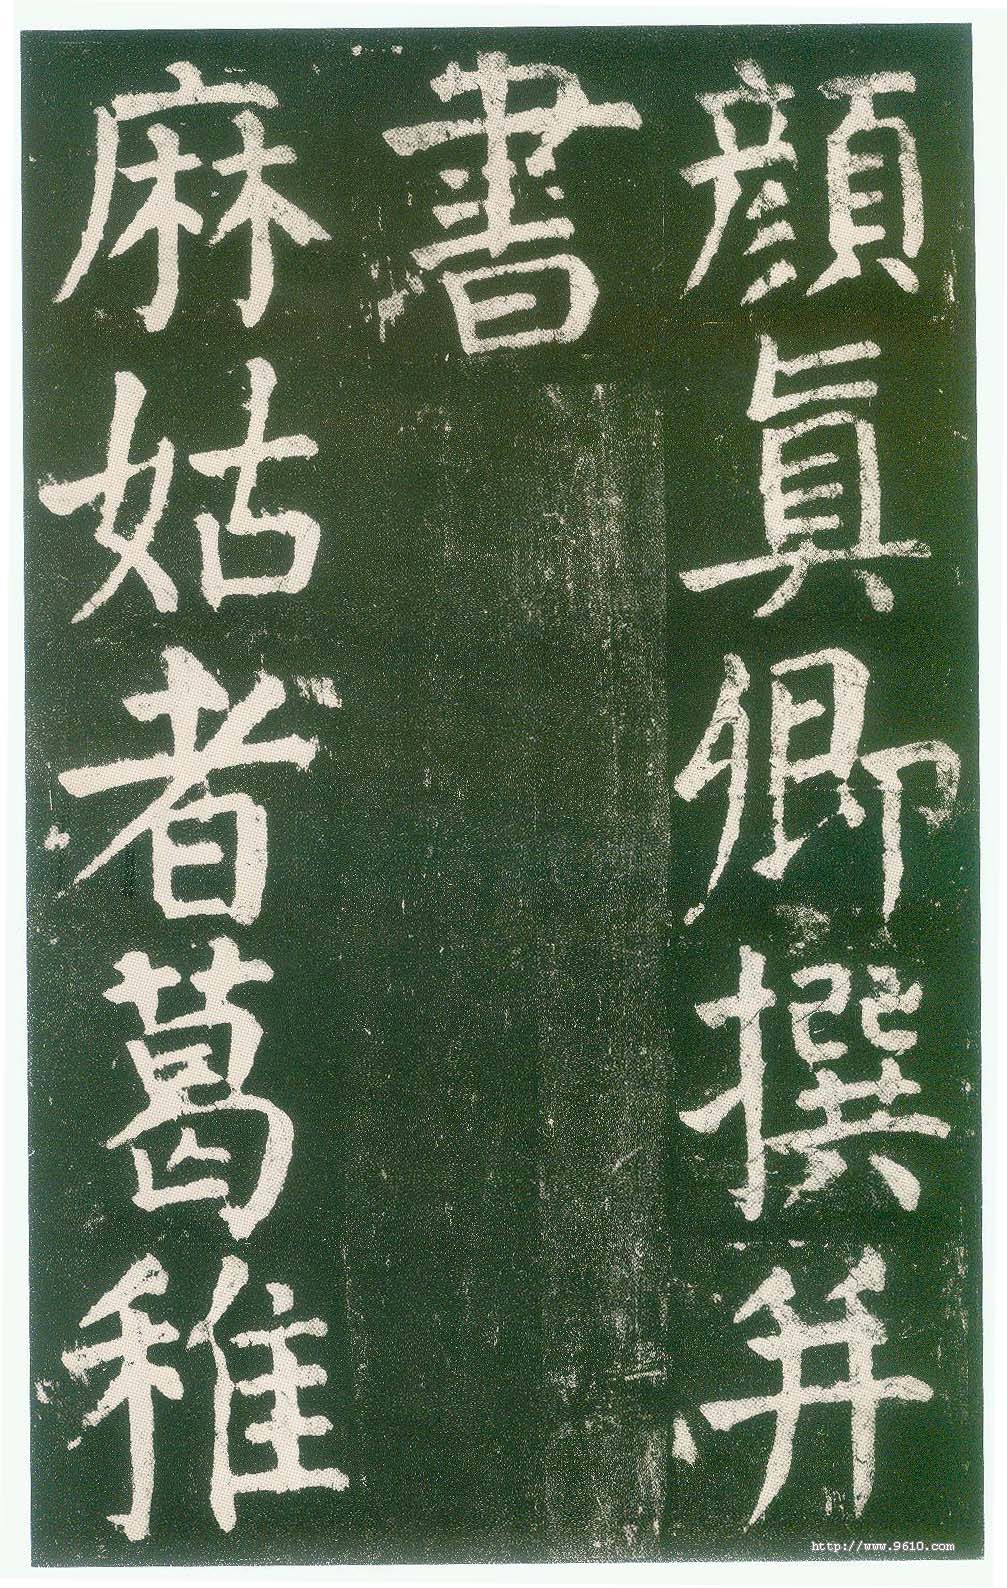 顏眞卿撰并
書
麻姑者葛稚
http://www.9610.com